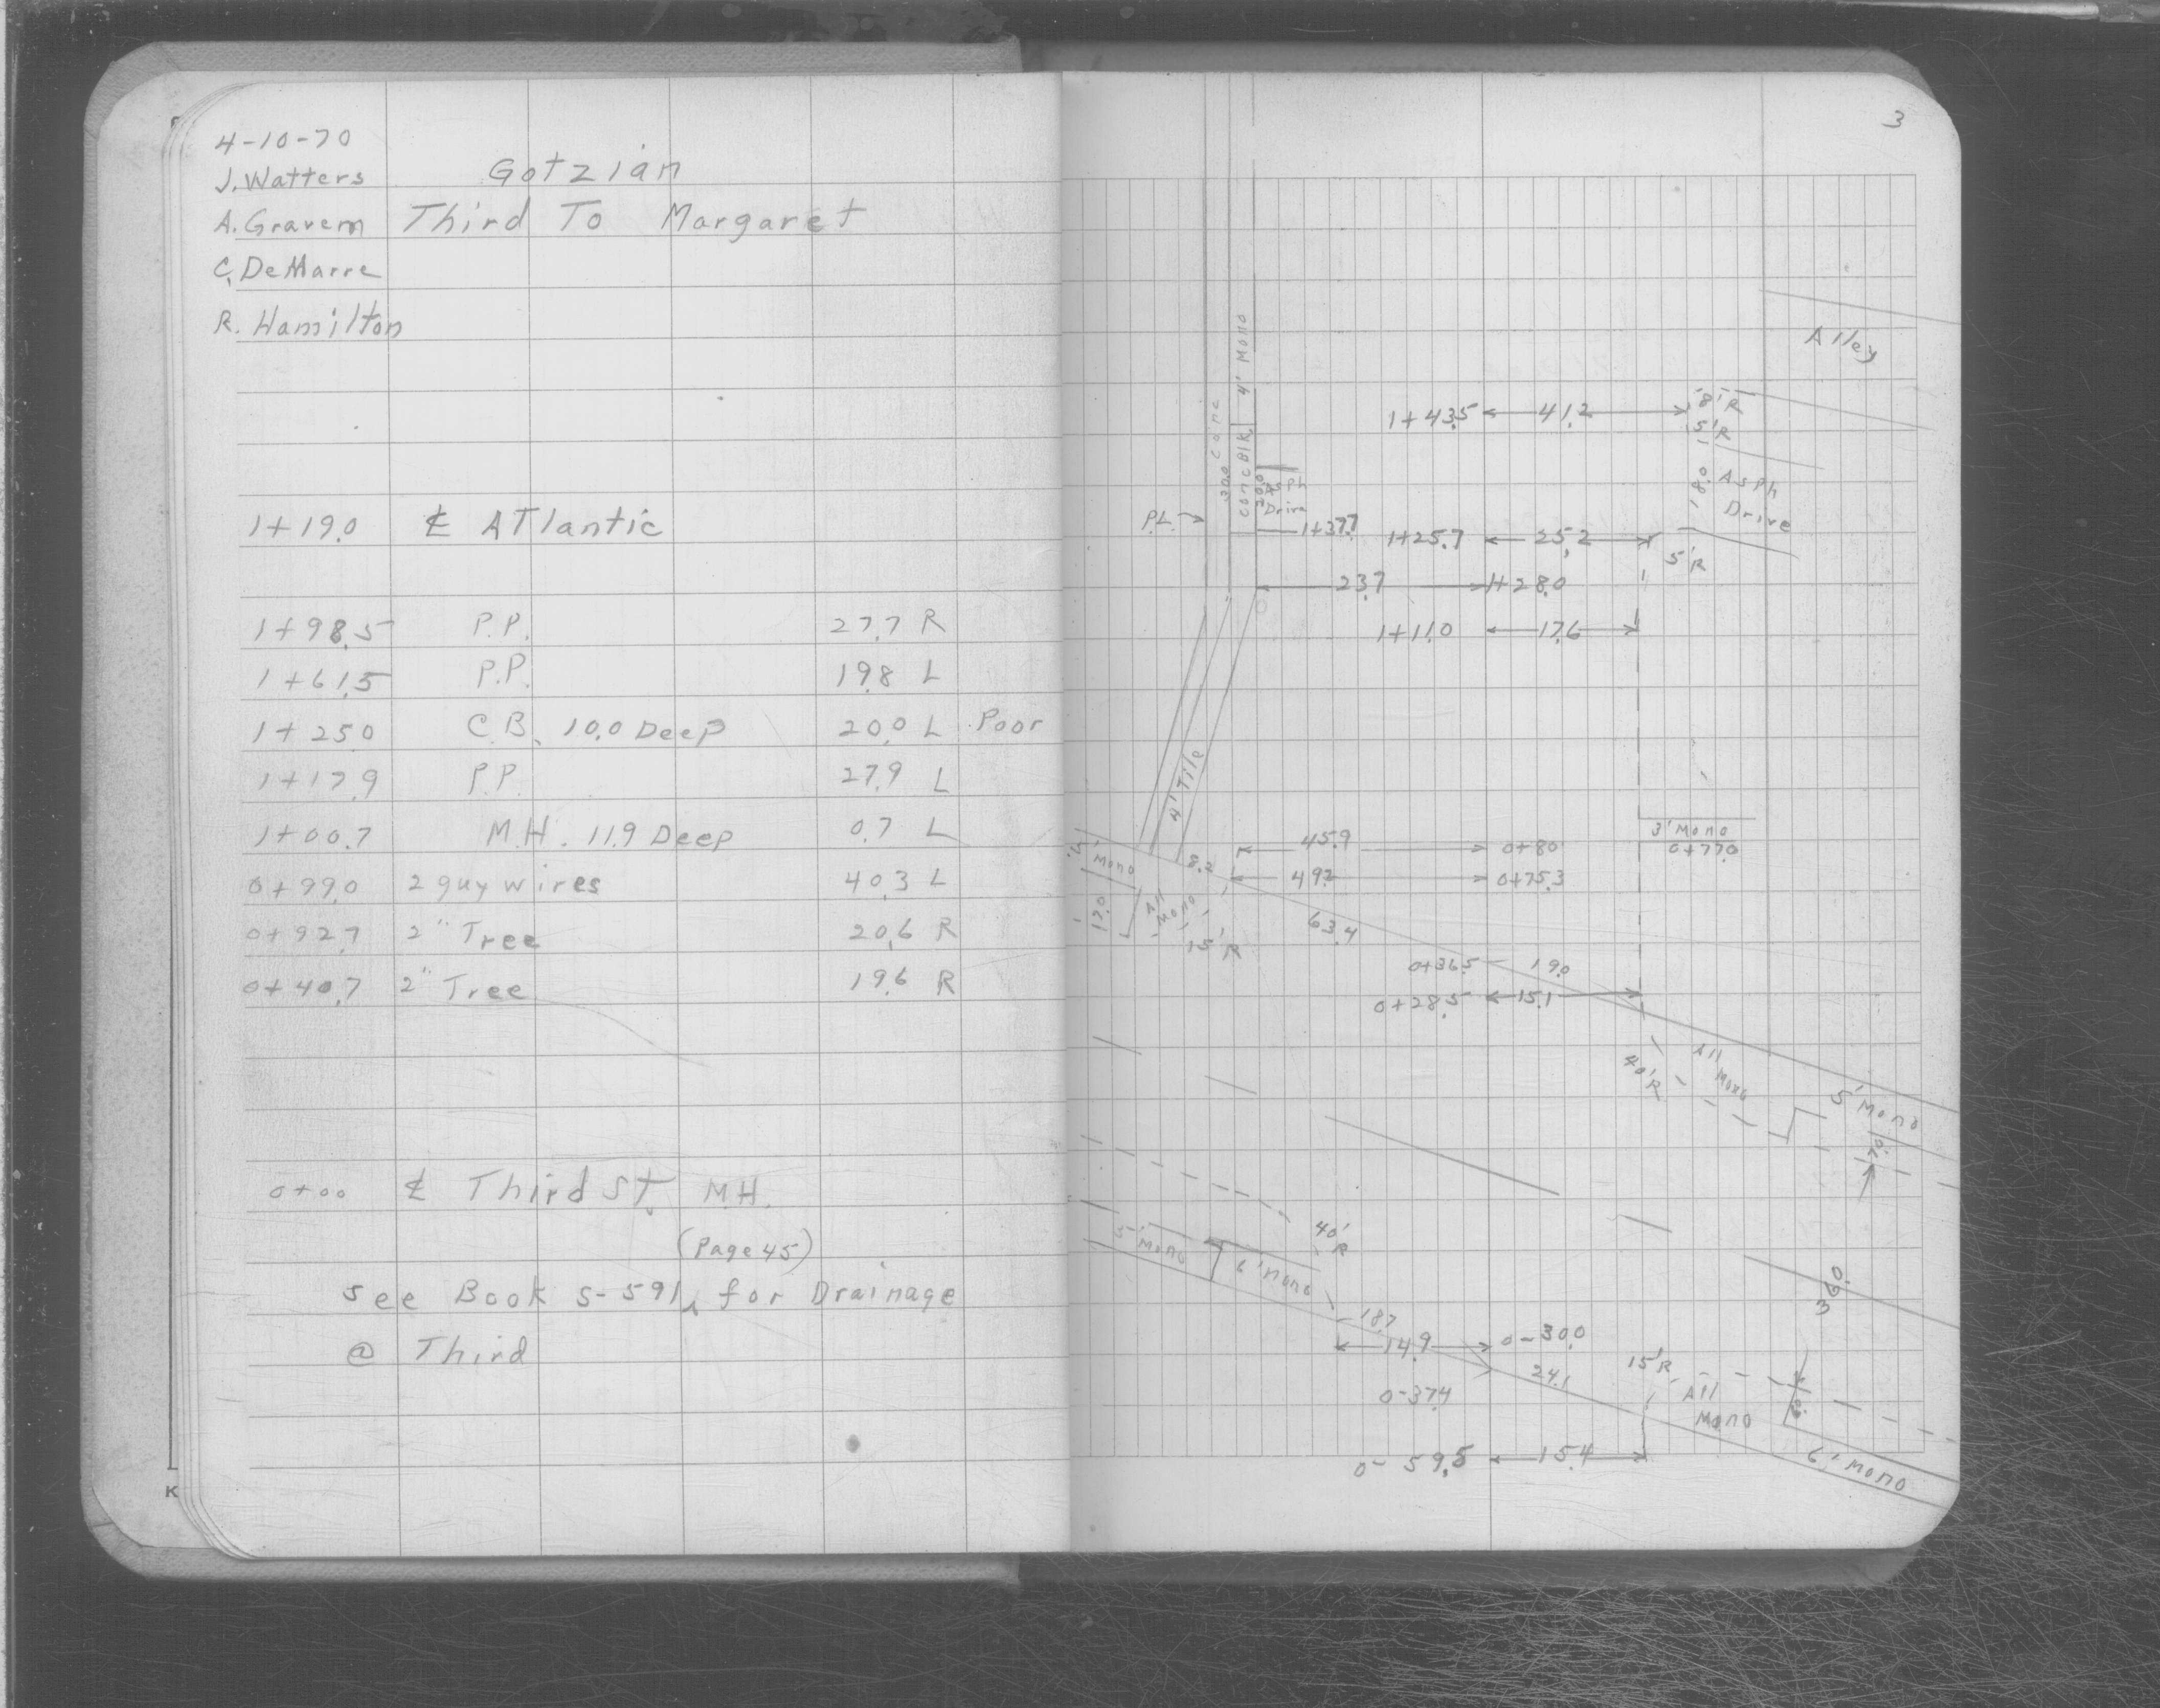 4-10-70
J. Watters
Gotzian
A. Gravem
Third To Margaret
C. DeMarre
R. Hamilton
1+19.0 ℄ Atlantic
1+98.5 P.P. 27.7 R
1+61.5 P.P. 19.8 L
1+25.0 C.B. 10.0 Deep 20.0 L Poor
1+17.9 P.P. 27.9 L
1+00.7 M.H. 11.9 Deep 0.7 L
0+99.0 2 guy wires 40.3 L
0+92.7 2" Tree 20.6 R
0+40.7 2" Tree 19.6 R
0+00 ℄ Third St. M.H.
(Page 45)
See Book S-591, for Drainage
@ Third
K
3
Alley
4' Mono
Conc Blk.
20.0
Asph
Drive
1+37.7
P.L.
1+43.5 41.2
8' R
5' R
18.0 Asph
Drive
1+25.7 25.2
5' R
23.7 1+28.0
1+11.0 17.6
4' Tile
3' Mono
0+77.0
45.9 0+80
8.2
49.2 0+75.3
Mono
17.0
All
Mono
15' R
63.4
0+36.5 19.0
0+28.5 15.1
40' R
All
Mono
5' Mono
7.0
40'
R
5' Mono
6' Mono
36.0
18.7
14.9 0-30.0
24.1
0-37.4
15' R
All
Mono
0-59.5 15.4
6' Mono